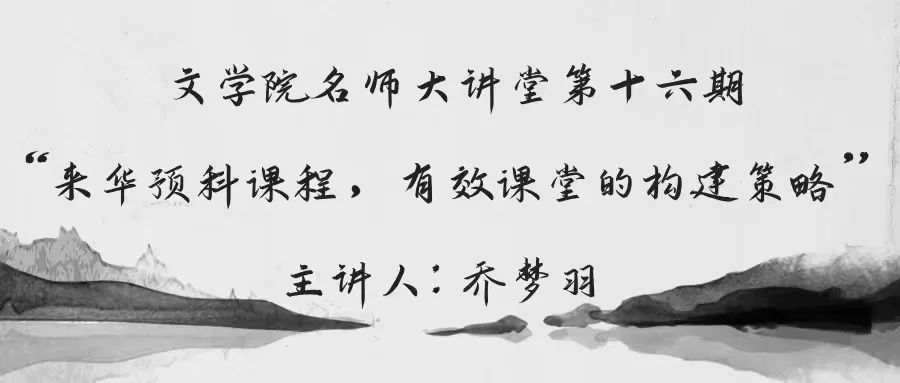 文学院名师大讲堂第十六期
“来华预科课程，有效课堂的构建策略”
主讲人：乔梦羽